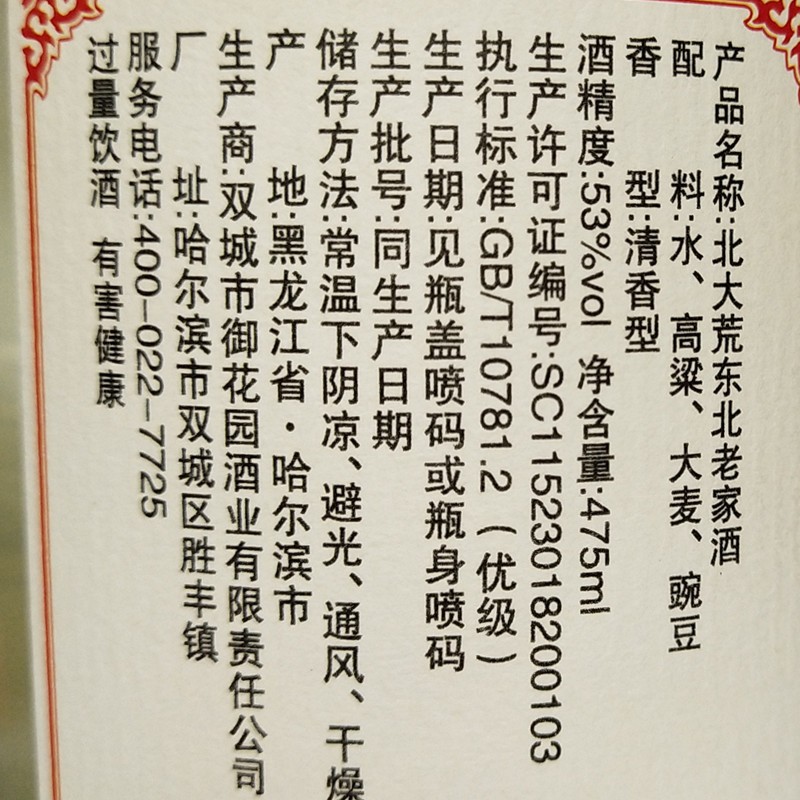 产品名称:北大荒东北老家酒
配料:水、高粱、大麦、豌豆
香型:清香型
酒精度:53%vol 净含量:475ml
生产许可证编号:SC11523018200103
执行标准:GB/T10781.2（优级）
生产日期:见瓶盖喷码或瓶身喷码
生产批号:同生产日期
储存方法:常温下阴凉、避光、通风、干燥
产地:黑龙江省·哈尔滨市
生产商:双城市御花园酒业有限责任公司
厂址:哈尔滨市双城区胜丰镇
服务电话:400-022-7725
过量饮酒 有害健康